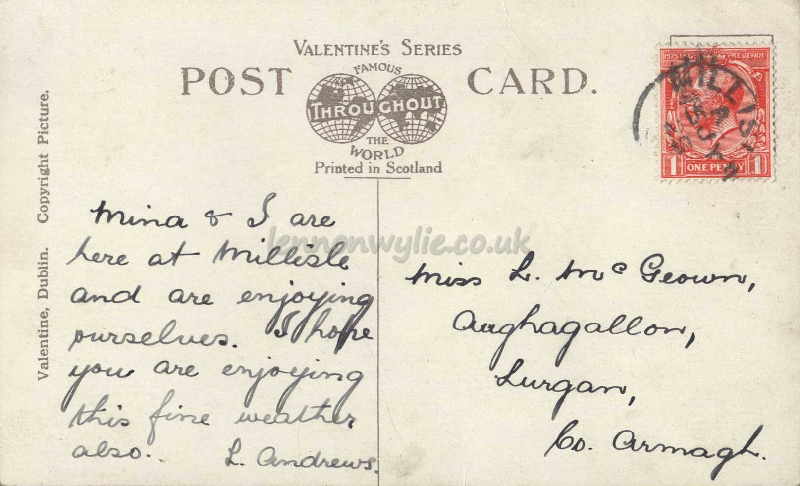 VALENTINE'S SERIES
POST CARD.
FAMOUS
THROUGHOUT
THE
WORLD
Printed in Scotland
Valentine, Dublin. Copyright Picture.
POSTAGE REVENUE
MILLIS
1 ONE PENNY 1
lennonwylie.co.uk
Mina & I are
here at Millisle
and are enjoying
ourselves. I hope
you are enjoying
this fine weather
also. L. Andrews.
Miss L. McGeown,
Aughagallon,
Lurgan,
Co. Armagh.